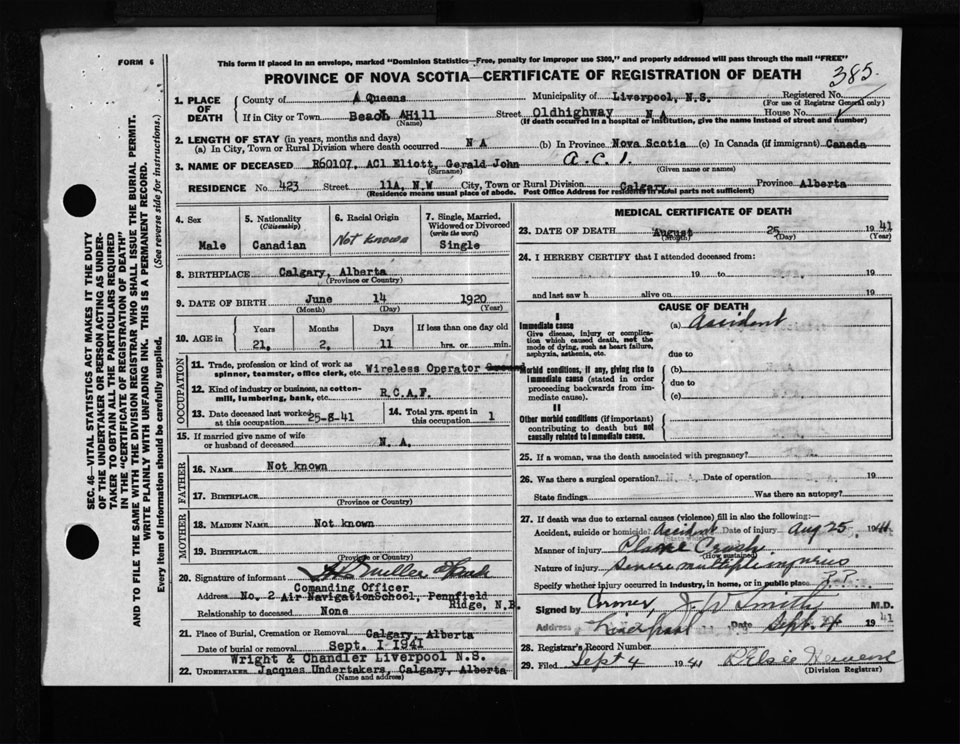 FORM 6
This form if placed in an envelope, marked "Dominion Statistics—Free, penalty for improper use $300," and properly addressed will pass through the mail "FREE"
PROVINCE OF NOVA SCOTIA—CERTIFICATE OF REGISTRATION OF DEATH
385
SEC. 46—VITAL STATISTICS ACT MAKES IT THE DUTY
OF THE UNDERTAKER OR PERSON ACTING AS UNDER-
TAKER TO OBTAIN ALL THE PARTICULARS REQUIRED
IN THE "CERTIFICATE OF REGISTRATION OF DEATH"
AND TO FILE THE SAME WITH THE DIVISION REGISTRAR WHO SHALL ISSUE THE BURIAL PERMIT.
WRITE PLAINLY WITH UNFADING INK. THIS IS A PERMANENT RECORD.
Every item of Information should be carefully supplied. (See reverse side for instructions.)
1. PLACE OF DEATH County of A Queens Municipality of Liverpool, N.S. Registered No.
(For use of Registrar General only)
If in City or Town Beach Hill Street Oldhighway N A House No.
(Name) (If death occurred in a hospital or institution, give the name instead of street and number)
2. LENGTH OF STAY (in years, months and days)
(a) In City, Town or Rural Division where death occurred N A (b) In Province Nova Scotia (c) In Canada (if immigrant) Canada
3. NAME OF DECEASED R60107, AC1 Eliott, Gerald John A.C.1.
(Surname) (Given name or names)
RESIDENCE No. 423 Street 11A, N.W City, Town or Rural Division Calgary Province Alberta
(Residence means usual place of abode. Post Office Address for residents in rural parts not sufficient)
4. Sex Male
5. Nationality (Citizenship) Canadian
6. Racial Origin Not known
7. Single, Married, Widowed or Divorced (write the word) Single
8. BIRTHPLACE Calgary, Alberta
(Province or Country)
9. DATE OF BIRTH June 14 1920
(Month) (Day) (Year)
10. AGE in Years 21. Months 2. Days 11 If less than one day old hrs. or min.
OCCUPATION
11. Trade, profession or kind of work as spinner, teamster, office clerk, etc. Wireless Operator
12. Kind of industry or business, as cotton-mill, lumbering, bank, etc. R.C.A.F.
13. Date deceased last worked at this occupation 25-8-41
14. Total yrs. spent in this occupation 1
15. If married give name of wife or husband of deceased N. A.
FATHER
16. NAME Not known
17. BIRTHPLACE
(Province or Country)
MOTHER
18. MAIDEN NAME Not known
19. BIRTHPLACE
(Province or Country)
20. Signature of informant
Comanding Officer
Address No. 2 Air NavigationSchool, Pennfield Ridge, N.B.
Relationship to deceased None
21. Place of Burial, Cremation or Removal Calgary, Alberta
Date of burial or removal Sept. 1 1941
Wright & Chandler Liverpool N.S.
22. UNDERTAKER Jacques Undertakers, Calgary, Alberta
(Name and address)
MEDICAL CERTIFICATE OF DEATH
23. DATE OF DEATH August 25 1941
(Month) (Day) (Year)
24. I HEREBY CERTIFY that I attended deceased from
19 to 19
and last saw h alive on 19
CAUSE OF DEATH
I
Immediate cause (a) Accident
Give disease, injury or complication which caused death, not the mode of dying, such as heart failure, asphyxia, asthenia, etc.
due to
Morbid conditions, if any, giving rise to immediate cause (stated in order proceeding backwards from immediate cause). (b)
due to
(c)
II
Other morbid conditions (if important) contributing to death but not causally related to immediate cause.
25. If a woman, was the death associated with pregnancy?
26. Was there a surgical operation? N. A. Date of operation 19
State findings Was there an autopsy?
27. If death was due to external causes (violence) fill in also the following:—
Accident, suicide or homicide? Accident Date of injury Aug 25 1941
(State which)
Manner of injury Plane Crash
(How sustained)
Nature of injury Severe multiple injuries
Specify whether injury occurred in industry, in home, or in public place
Signed by Coroner J W Smith M.D.
Address Liverpool Date Sept. 4 1941
28. Registrar's Record Number
29. Filed Sept 4 1941
(Division Registrar)